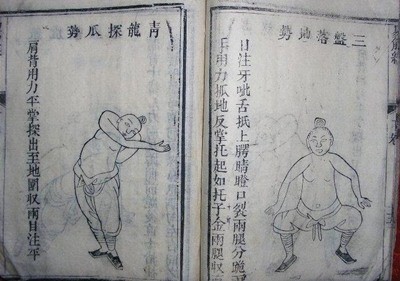 三盤落地勢
目注牙呲舌抵上腭睛瞪口裂兩腿分跪兩
手用力抓地反掌托起如托子金兩腿収直
青龍探爪勢
肩背用力平掌探出至地圍収兩目注平